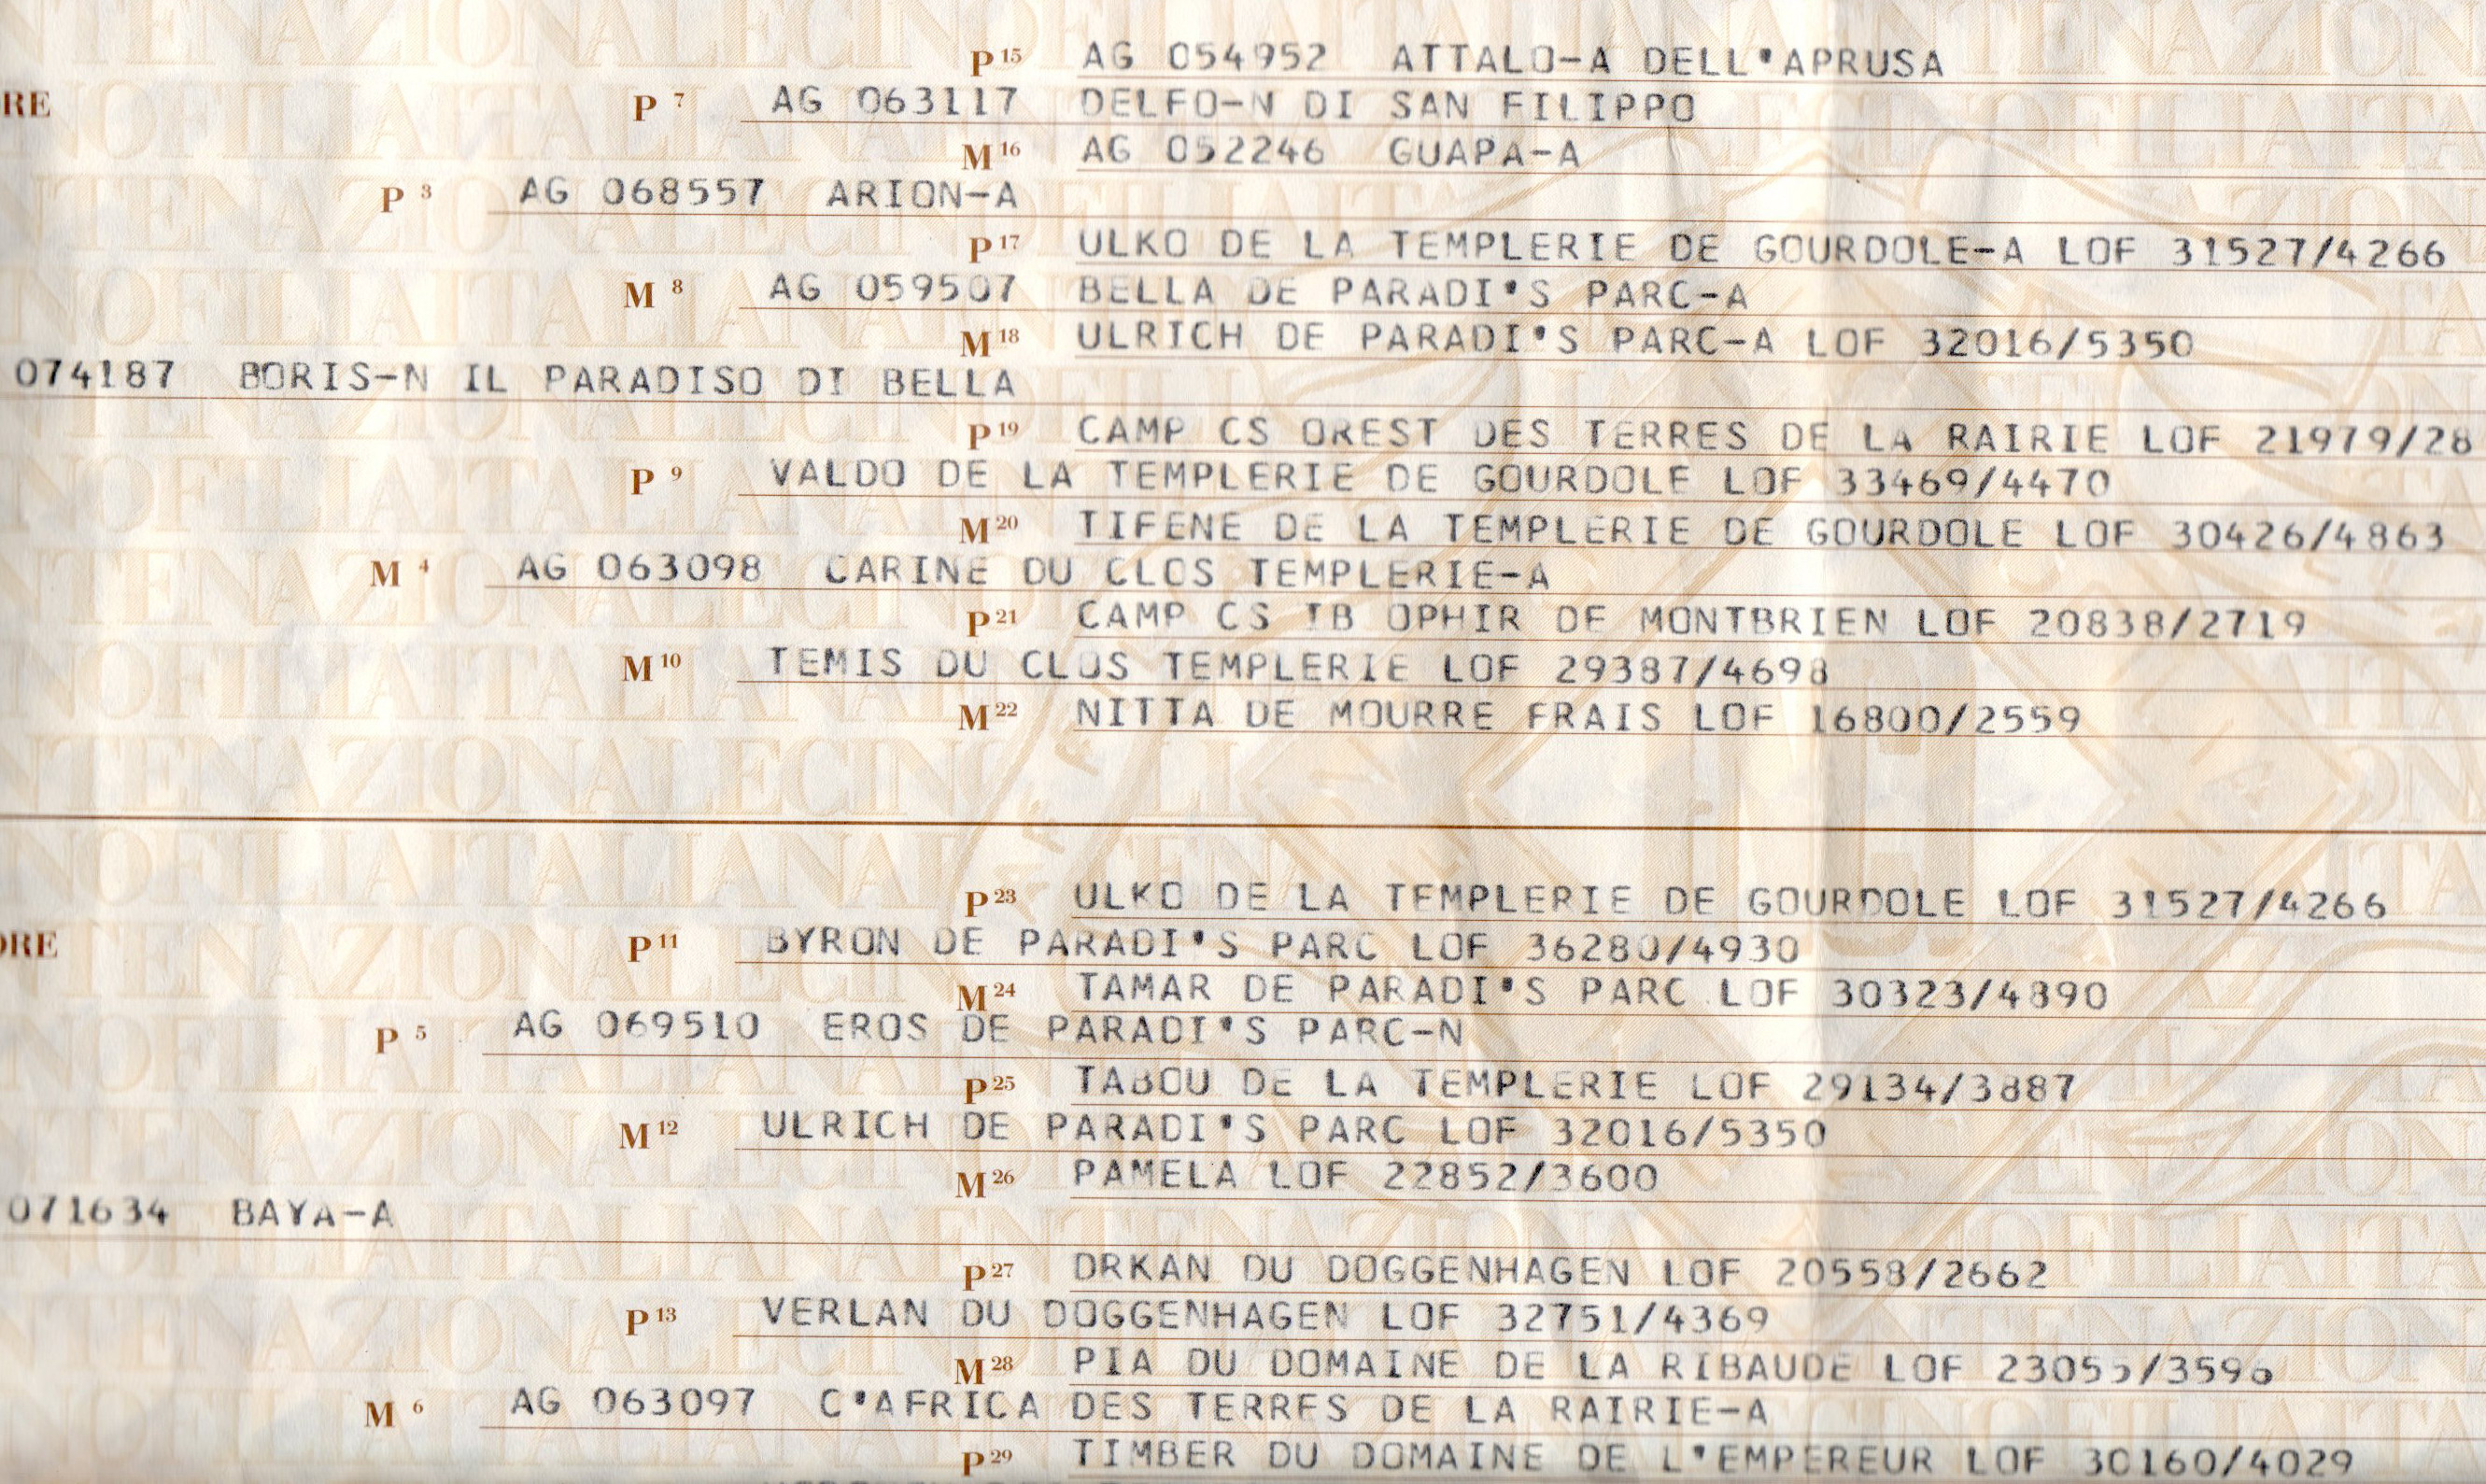 P 15 AG 054952 ATTALO-A DELL'APRUSA
RE P 7 AG 063117 DELFO-N DI SAN FILIPPO
M 16 AG 052246 GUAPA-A
P 3 AG 068557 ARION-A
P 17 ULKO DE LA TEMPLERIE DE GOURDOLE-A LOF 31527/4266
M 8 AG 059507 BELLA DE PARADI'S PARC-A
M 18 ULRICH DE PARADI'S PARC-A LOF 32016/5350
074187 BORIS-N IL PARADISO DI BELLA
P 19 CAMP CS OREST DES TERRES DE LA RAIRIE LOF 21979/28
P 9 VALDO DE LA TEMPLERIE DE GOURDOLE LOF 33469/4470
M 20 TIFENE DE LA TEMPLERIE DE GOURDOLE LOF 30426/4863
M 4 AG 063098 CARINE DU CLOS TEMPLERIE-A
P 21 CAMP CS IB OPHIR DE MONTBRIEN LOF 20838/2719
M 10 TEMIS DU CLOS TEMPLERIE LOF 29387/4698
M 22 NITTA DE MOURRE FRAIS LOF 16800/2559
P 23 ULKO DE LA TEMPLERIE DE GOURDOLE LOF 31527/4266
DRE P 11 BYRON DE PARADI'S PARC LOF 36280/4930
M 24 TAMAR DE PARADI'S PARC LOF 30323/4890
P 5 AG 069510 EROS DE PARADI'S PARC-N
P 25 TABOU DE LA TEMPLERIE LOF 29134/3887
M 12 ULRICH DE PARADI'S PARC LOF 32016/5350
M 26 PAMELA LOF 22852/3600
071634 BAYA-A
P 27 ORKAN DU DOGGENHAGEN LOF 20558/2662
P 13 VERLAN DU DOGGENHAGEN LOF 32751/4369
M 28 PIA DU DOMAINE DE LA RIBAUDE LOF
M 6 AG 063097 C'AFRICA DES TERRES DE LA RAIRIE-A
P 29 TIMBER DU DOMAINE DE L'EMPEREUR LOF 30160/4029